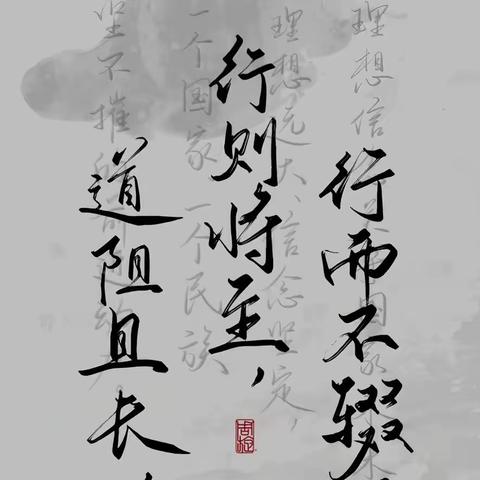 道阻且长，
行则将至，
行而不辍，
理想信
理想远大、信念坚定，
一个国家 一个民族
坚不摧